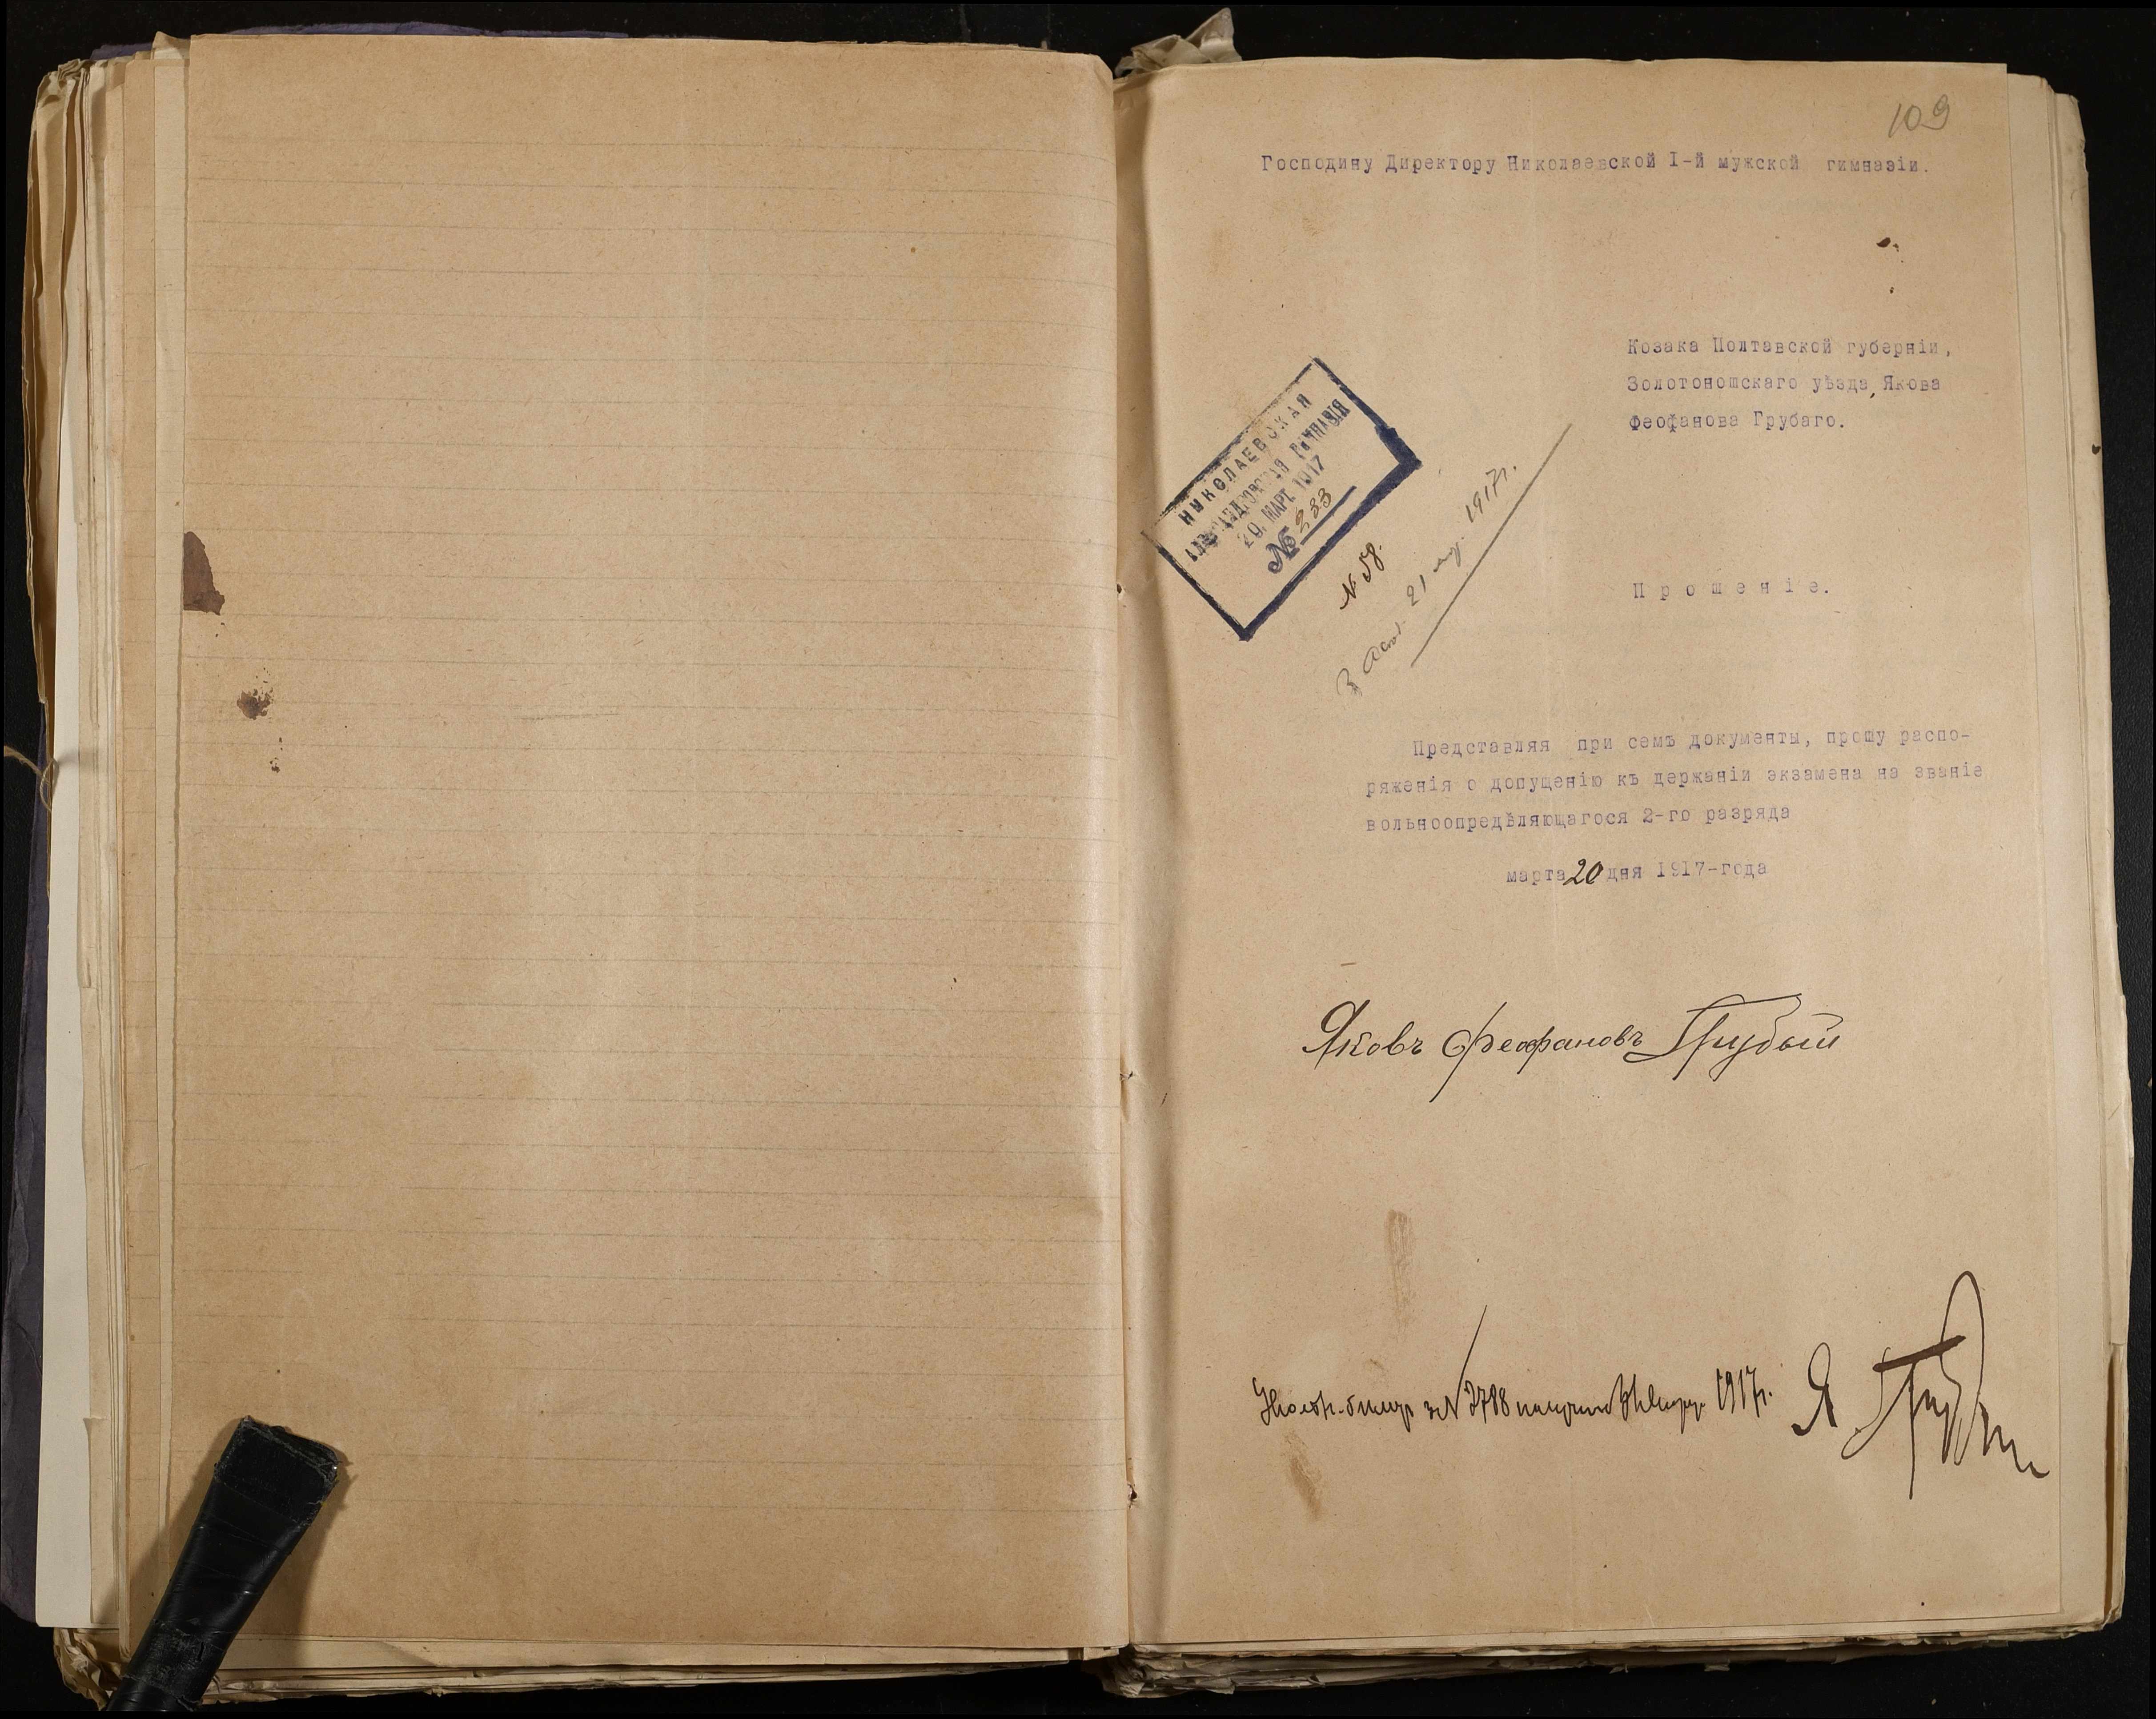 109
Господину Директору Николаевской I-й мужской гимназіи.
Козака Полтавской губерніи,
Золотоношскаго уѣзда, Якова
Феофанова Грубаго.
НИКОЛАЕВСКАЯ
АЛЕКСАНДРОВСКАЯ ГИМНАЗІЯ
20. МАРТ. 1917
№ 233
N. 58.
21 мар. 1917г.
Прошеніе.
Представляя при семъ документы, прошу распо-
ряженія о допущенію къ держаніи экзамена на званіе
вольноопредѣляющагося 2-го разряда
марта 20 дня 1917-года
Яковъ Феофановъ Грубый
N 2788 1917г. Я Грубый